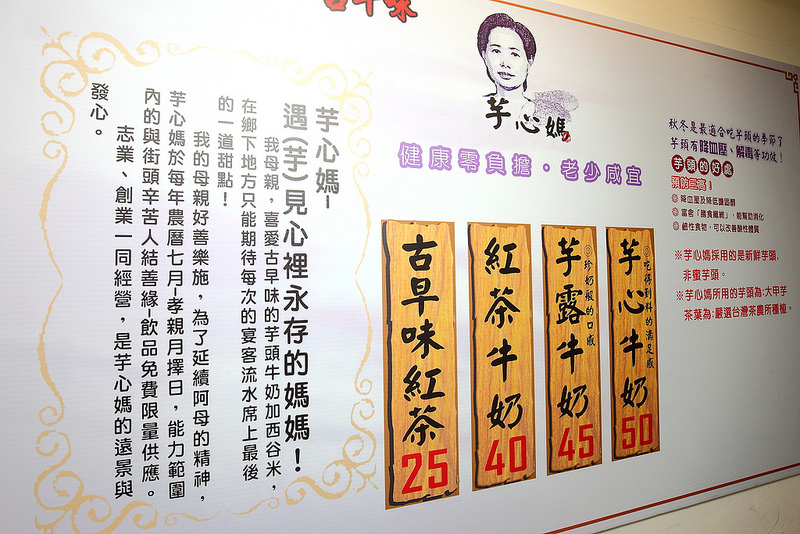 古早味
芋心媽
健康零負擔。老少咸宜
芋心媽-
遇(芋)見心裡永存的媽媽！
我母親，喜愛古早味的芋頭牛奶加西谷米，
在鄉下地方只能期待每次的宴客流水席上最後
的一道甜點！
我的母親好善樂施，為了延續阿母的精神，
芋心媽於每年農曆七月-孝親月擇日，能力範圍
內的與街頭辛苦人結善緣-飲品免費限量供應。
志業、創業一同經營，是芋心媽的遠景與
發心。
古早味紅茶25
紅茶牛奶40
芋露牛奶45
珍奶般的口感
芋心牛奶50
吃得到料的滿足感
秋冬是最適合吃芋頭的季節了
芋頭有降血壓、解毒等功效！
芋頭的好處
預防三高！
降血壓及降低膽固醇
富含「膳食纖維」，能幫助消化
鹼性食物，可以改善酸性體質
※芋心媽採用的是新鮮芋頭，
非蜜芋頭。
※芋心媽所用的芋頭為:大甲芋
茶葉為:嚴選台灣茶農所種植。